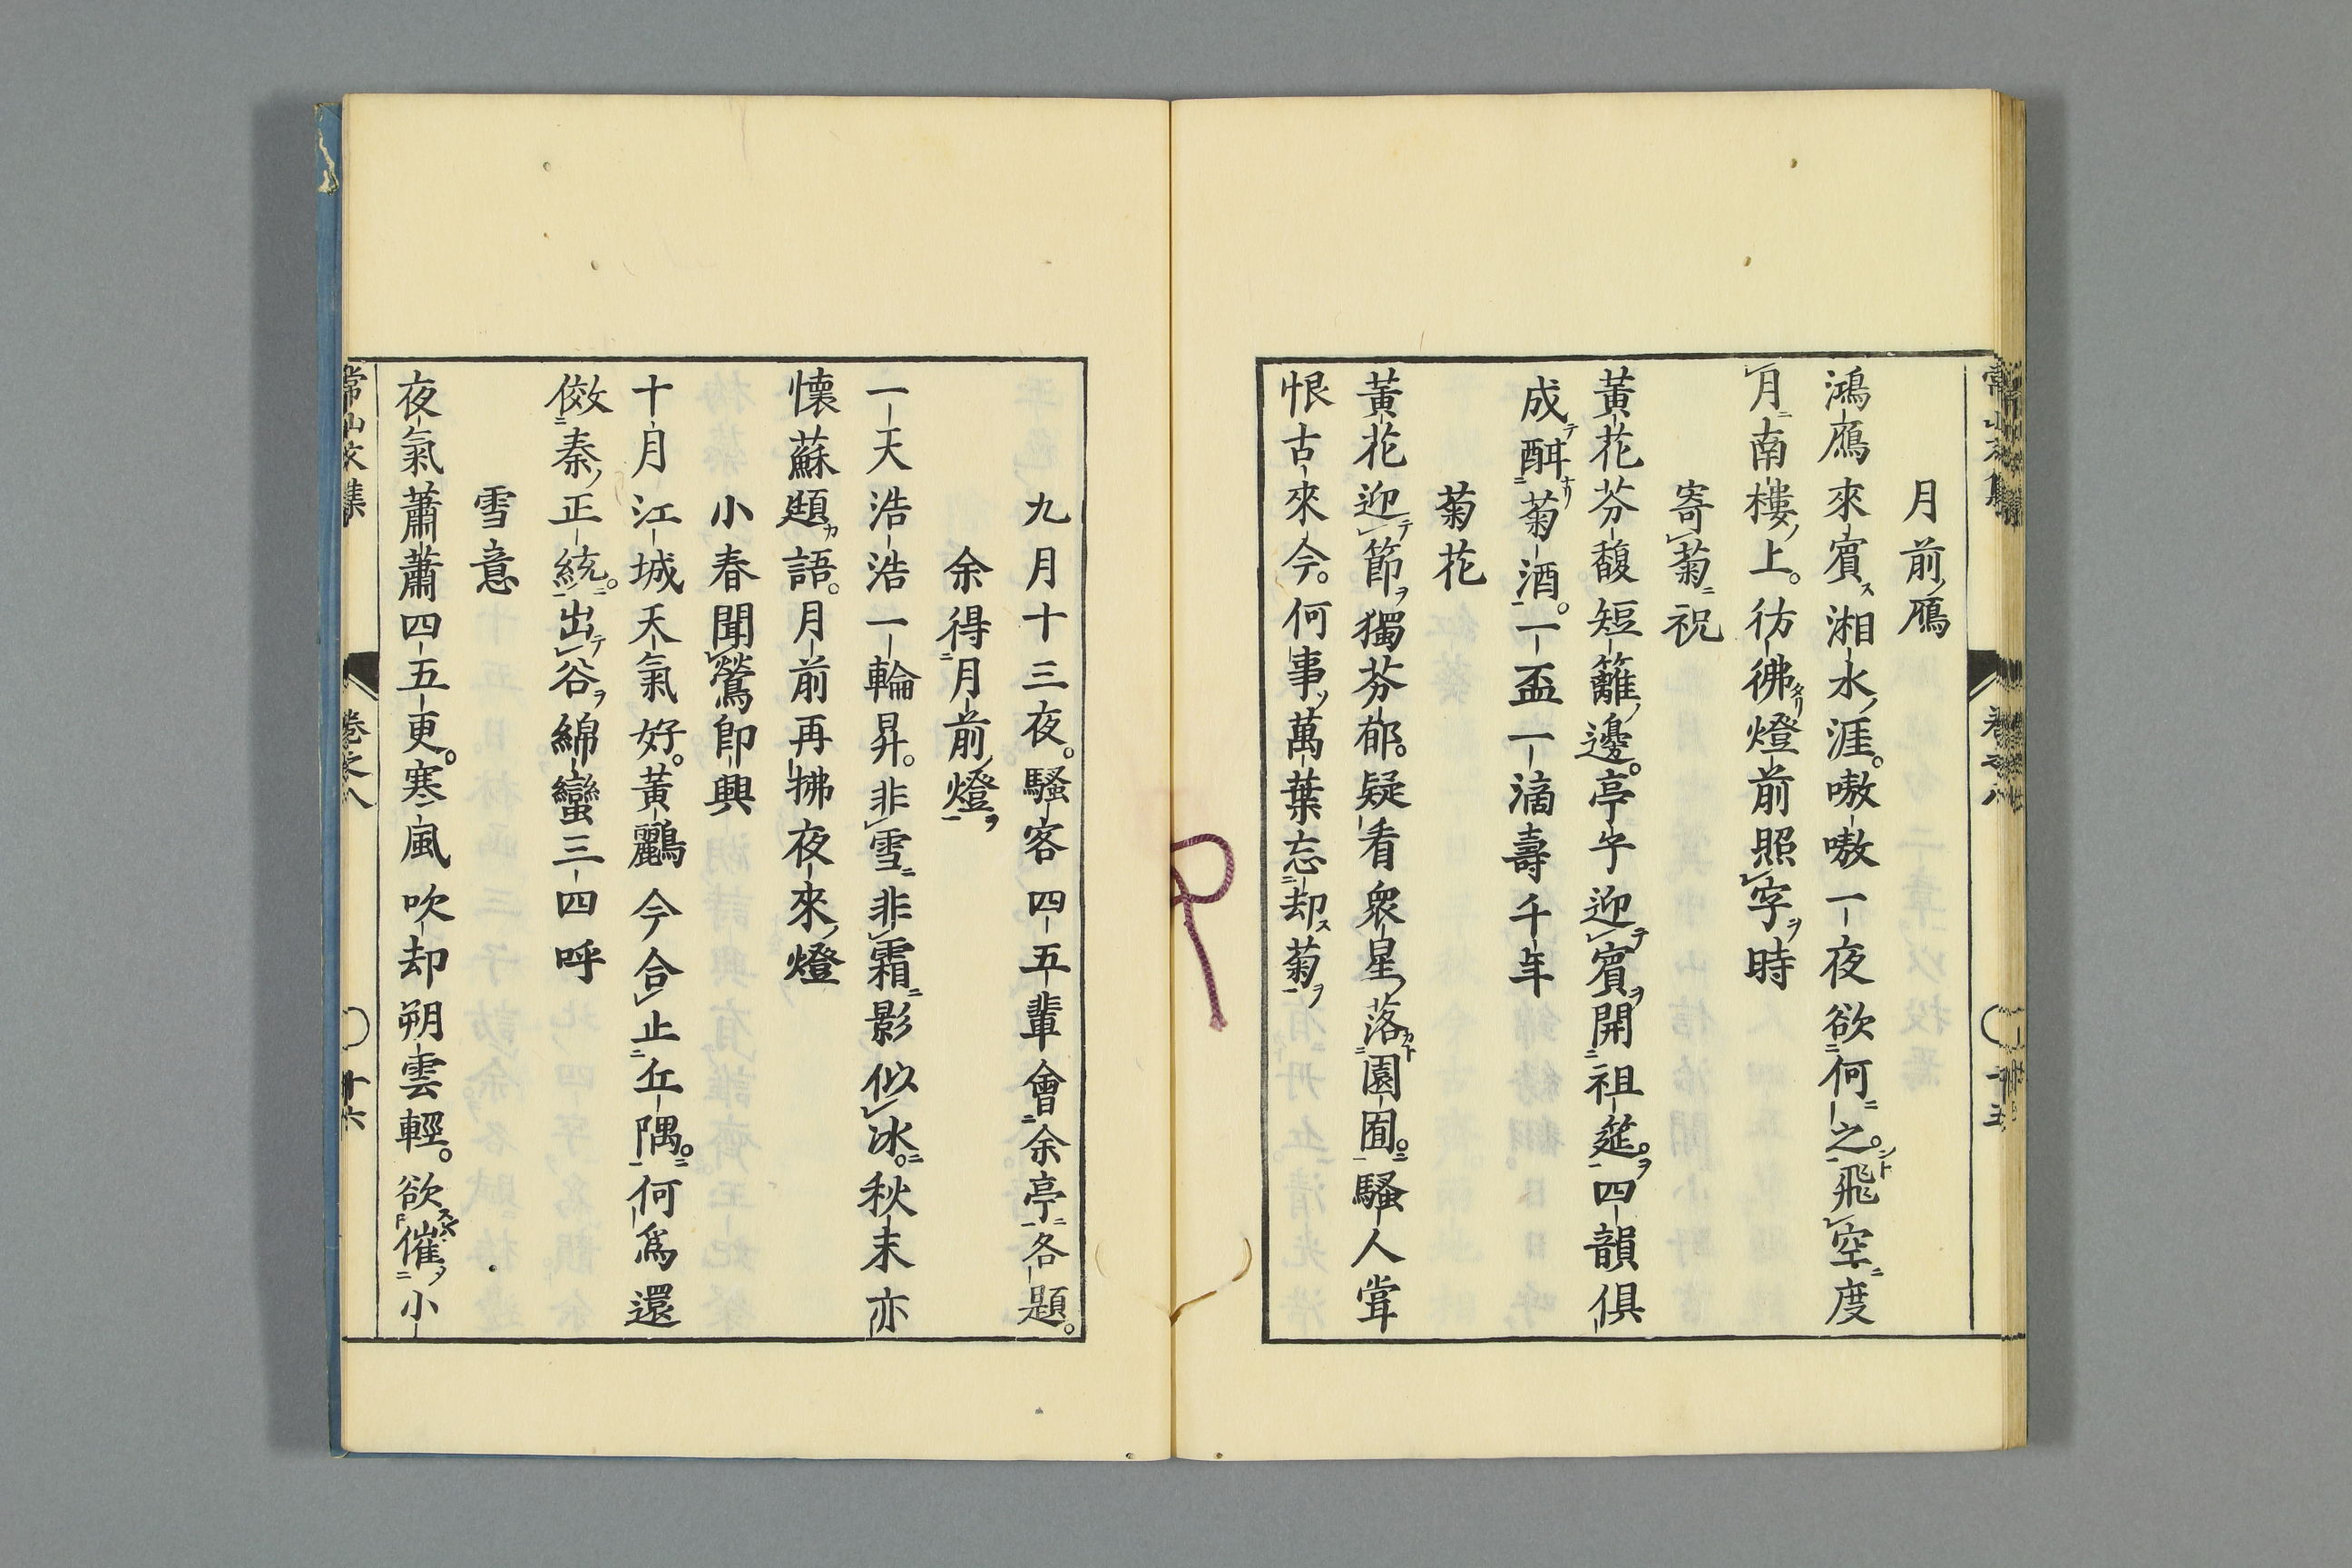 月前ノ鴈
鴻鴈來賓ス湘水ノ涯。嗷嗷一夜欲何之。飛空度
月南樓ノ上。彷彿燈前照字ヲ時
寄菊ニ祝
黃花芬馥短籬ノ邊。亭午迎テ賓ヲ開祖筵ヲ。四韻俱
成テ酎菊酒。一盃一滴壽千年
菊花
黃花迎テ節ヲ獨芬郁。疑看衆星ノ落園囿ニ。騷人嘗
恨古來今。何事ソ萬葉忘却ス菊ヲ
常山文集 卷之八 十五
九月十三夜。騷客四五輩會余亭ニ各題。
余得月前ノ燈ヲ
一天浩浩一輪昇。非雪ニ非霜ニ影似冰ニ。秋末亦
懷蘇題カ語。月前再拂夜來ノ燈
小春聞鶯卽興
十月江城天氣好。黃鸝今合止丘隅ニ。何爲還
傚秦ノ正統ニ。出テ谷ヲ綿蠻三四呼
雪意
夜氣蕭蕭四五更。寒風吹却朔雲輕。欲催ヲ小
常山文集 卷之八 十六